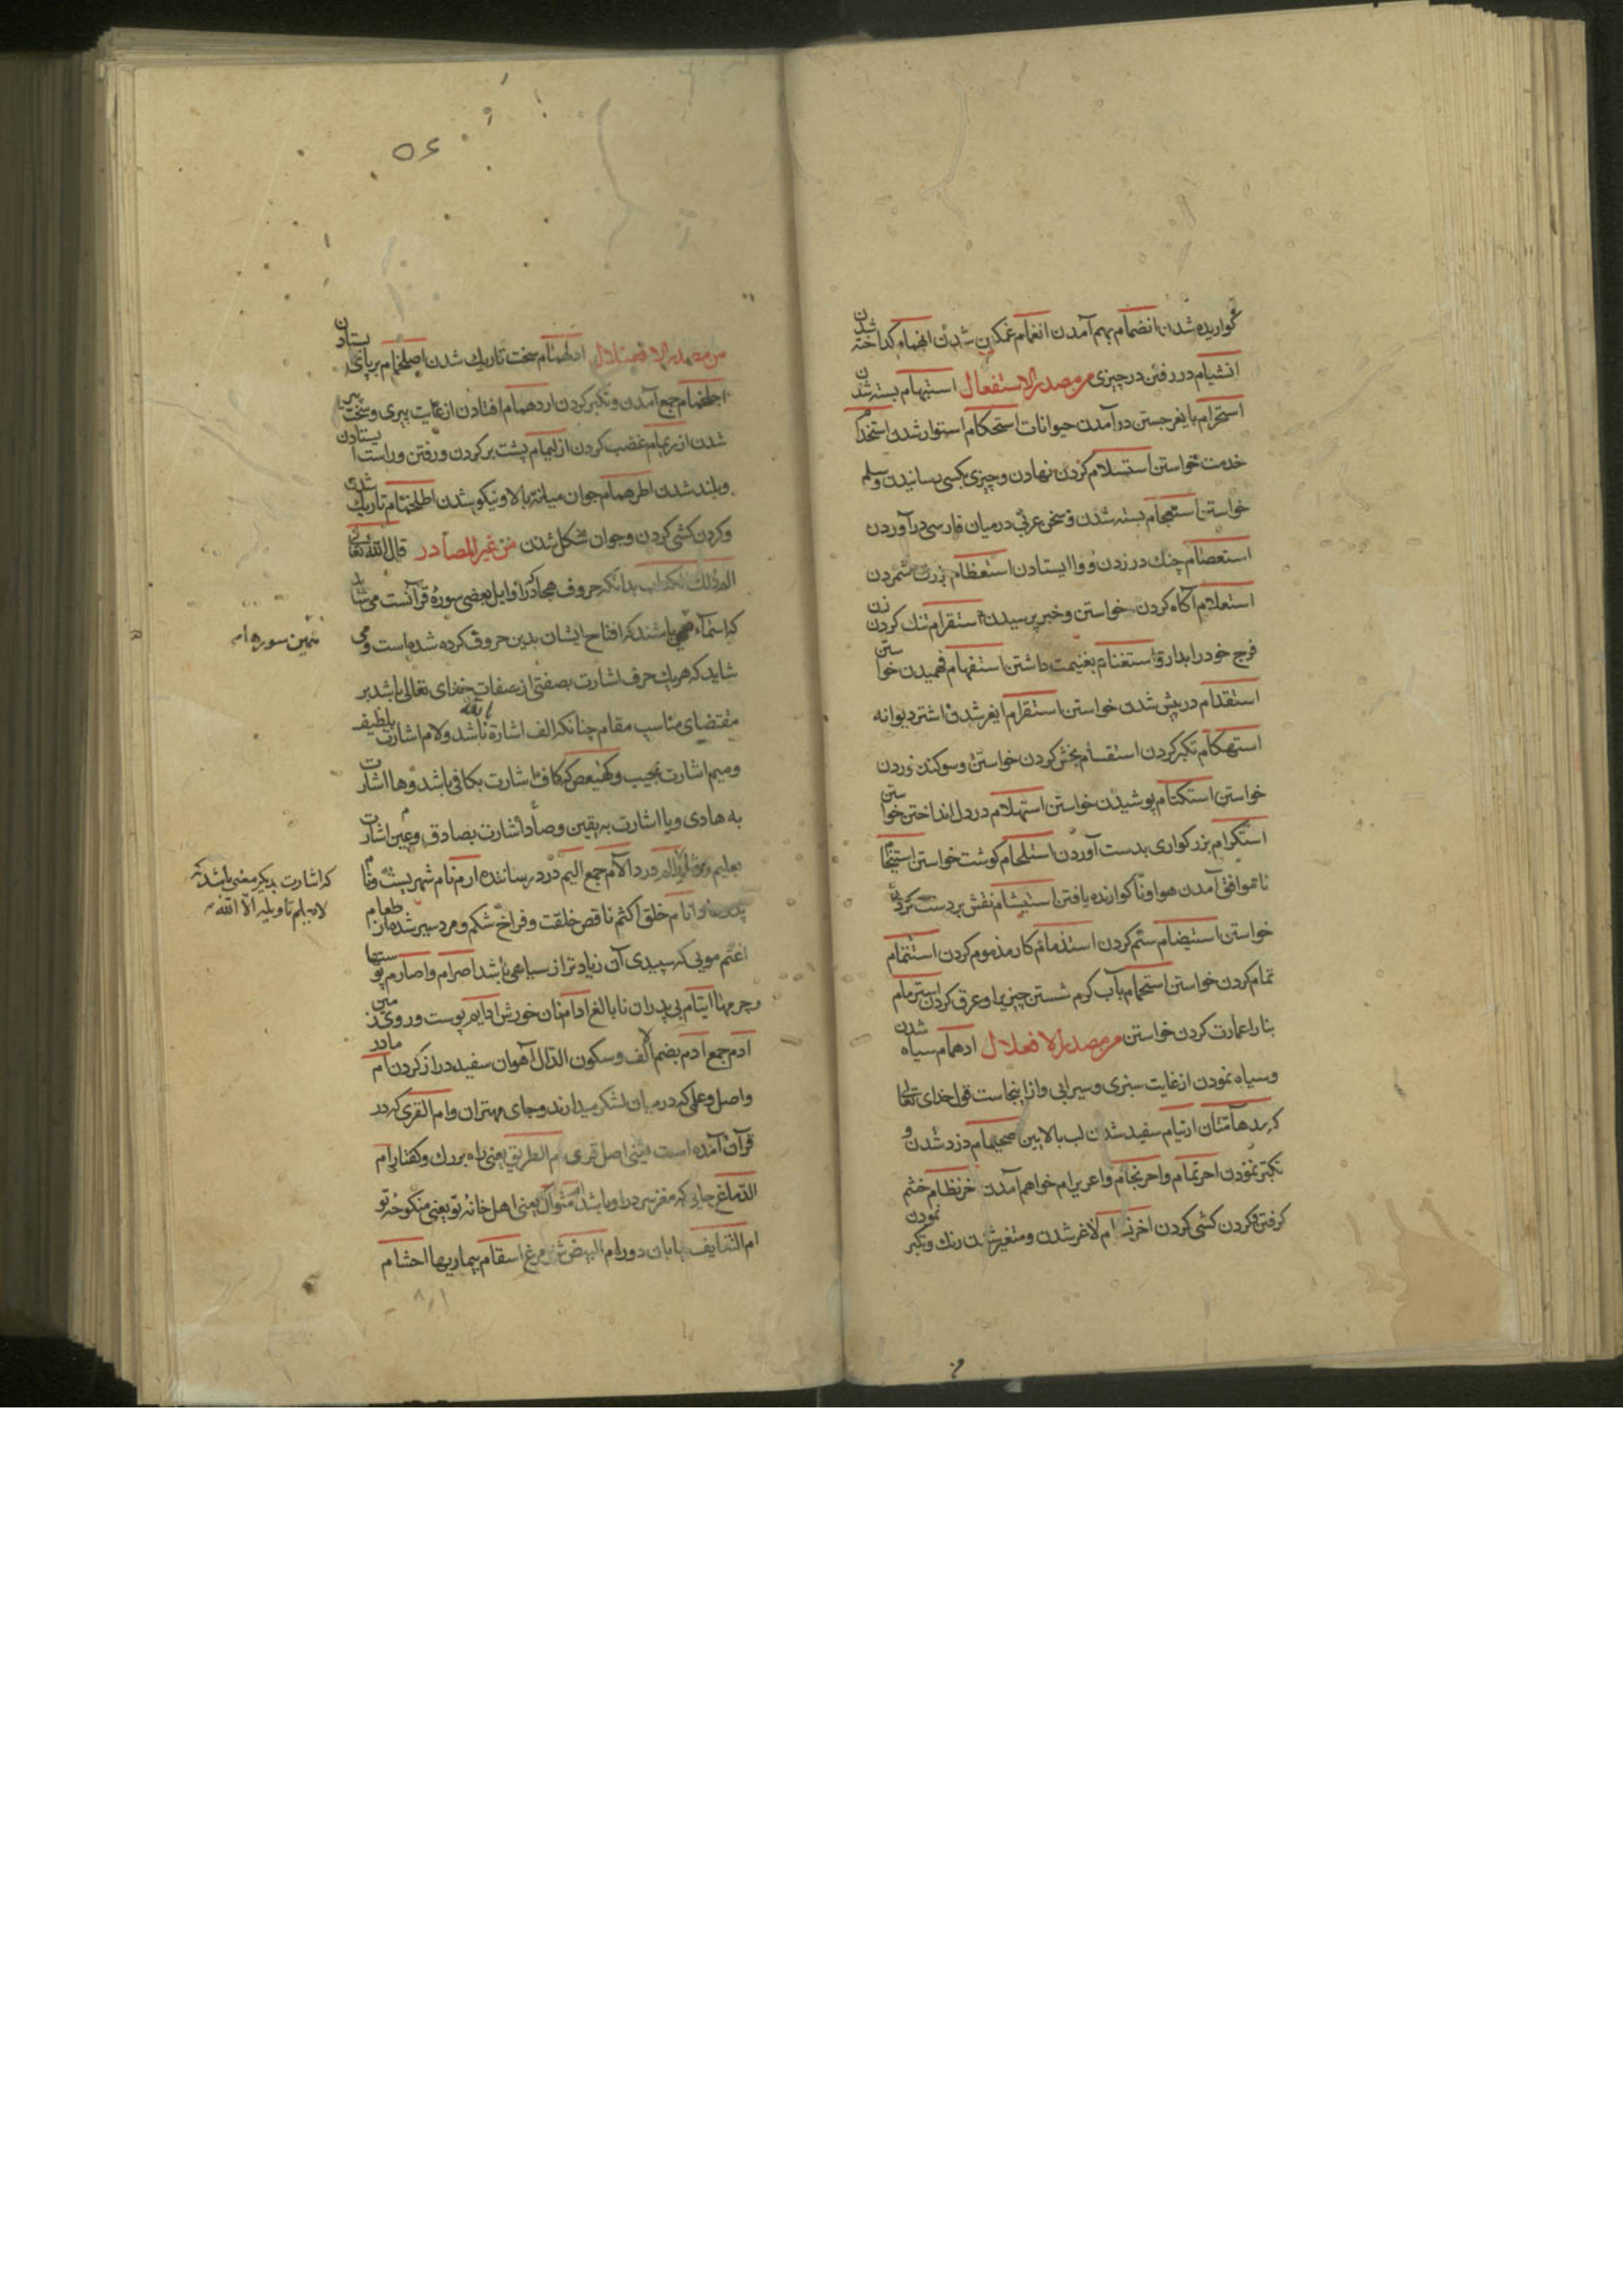 گواریده شدن انضمام بهم آمدن انغمام غمکین شدن انهمام کداخته شدن
انشیام در رفتن در چیزی من مصدر الاستفعال استبهام بسته شدن
استحرام بایغر جستن در آمدن حیوانات استحکام استوار شدن استخدام
خدمت خواستن استسلام کردن نهادن و چیزی بکسی رسانیدن و سلم
خواستن استعجام بسته شدن و سخن عربی در میان فارسی در آوردن
استعصام چنك در زدن و وا ایستادن استعظام بزرك شمردن
استعلام آکاه کردن خواستن و خبر پرسیدن استقرام تنك کردن زن
فرج خود را بدارو استغنام بغنیمت داشتن استفهام فهمیدن خواستن
استقدام در پیش شدن خواستن استقرام ایغر شدن اشتر دیوانه
استهکام تکبر کردن استقسام بخش کردن خواستن و سوکند خوردن
خواستن استکتام پوشیدن خواستن استهلام در دل انداختن خواستن
استکرام بزرکواری بدست آوردن استلحام کوشت خواستن استیخام
ناموافق آمدن هوا و ناکوارنده یافتن استیشام نقش بر دست کردن
خواستن استیضام ستم کردن استذمام کار مذموم کردن استتمام
تمام کردن خواستن استحمام بآب کرم شستن چیزیرا و عرق کردن استرمام
بنا را عمارت کردن خواستن من مصدر الافعلال ادهمام سیاه شدن
و سیاه نمودن از غایت سبزی و سیرابی و از اینجاست قول خدای تعالی
که مدهآمتان ارثیام سفید شدن لب بالایین صحیمام زرد شدن و
تکبر نمودن احرنمام و احرنجام و اعریرام فراهم آمدن خرنطام خشم
کرفتن و کردن کشی کردن اخرنـ ـام لاغر شدن و متغیر شدن رنك و تکبر نمودن
من مصدر الافعنلال ادلهمام سخت تاریك شدن اصلخمام بر پای ایستادن
اجلخمام جمع آمدن و تکبر کردن اردهمام افتادن از غایت پیری و سخت پیر
شدن ازریمام غضب کردن ازلیمام پشت بر کردن و رفتن و راست ایستادن
و بلند شدن اطرهمام جوان میانه بالا و نیکو شدن اطلخمام تاریك شدن
و کردن کشی کردن و جوان مشکل شدن من غیر المصادر قال الله تعالی
الم ذلك الکتاب بدانکه حروف هجا که در اوایل بعضی سوره قرآنست می شاید
که اسماء باشند که افتاح ایشان بدین حروف کرده شده است و می
همین سوره ام
شاید که هر یك حرف اشارت بصفتی از صفات خدای تعالی باشد بر
مقتضای مناسب مقام چنانکه الف اشارة بالله باشد و لام اشارت بلطیف
و میم اشارت بمجیب و کهیعص که کاف اشارت بکافی باشد و ها اشارت
به هادی و یا اشارت به یقین و صاد اشارت بصادق و عین اشارت
بعلیم درد آلام جمع الیم درد رساننده ارم نام شهریست و نام
که اشارت بدیکر معنی باشد که
لا یعلم تاویله الا الله
انام خلق اکثم ناقص خلقت و فراخ شکم و مرد سیر شده از طعام
اغثم مویی که سپیدی آن زیادتر از سیاهی باشد اصرام و اصارم پوستها
و چرمها ایتام بی پدران نابالغ ادام نان خورش ادیم پوست و روی زمین
ادم جمع ادم بضم الف و سکون الدال آهوان سفید دراز کردن ام مادر
و اصل و علمی که در میان لشکر میدارند و جای مهتران و ام القری که در
قرآن آمده است یعنی اصل قری ام الطریق یعنی راه بزرك و کفتار ام
الدماغ جایی که مغز سر در او باشد ام مثواك یعنی اهل خانه تو یعنی منکوحه تو
ام التنایف بیابان دور ام البیض شتر مرغ اسقام بیماریها احشام